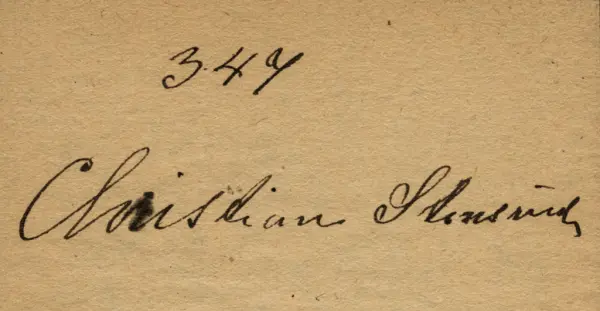 347
Christian Stensrud